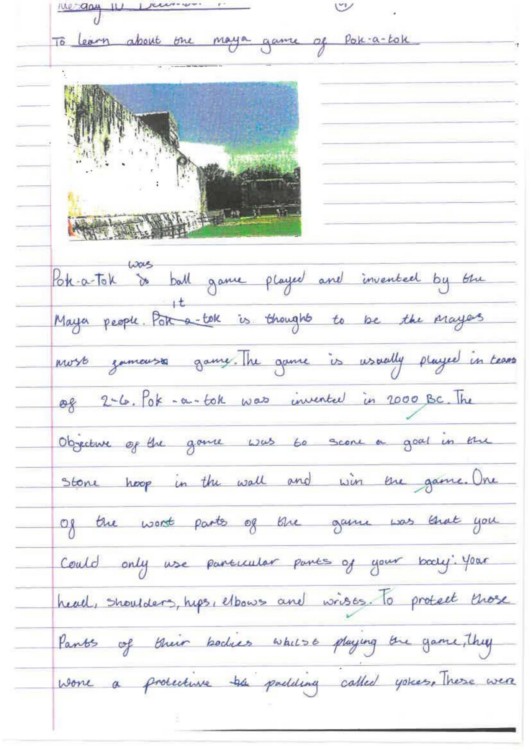 To learn about the maya game of Pok-a-tok
was
Pok-a-Tok is ball game played and invented by the
it
Maya people. Pok-a-tok is thought to be the mayas
most famous game. The game is usually played in teams
of 2-6. Pok-a-tok was invented in 2000 BC. The
Objective of the game was to score a goal in the
stone hoop in the wall and win the game. One
of the worst parts of the game was that you
Could only use particular parts of your body: Your
head, shoulders, hips, elbows and wrists. To protect those
Parts of their bodies whilst playing the game, they
wore a protective padding called yokes, These were